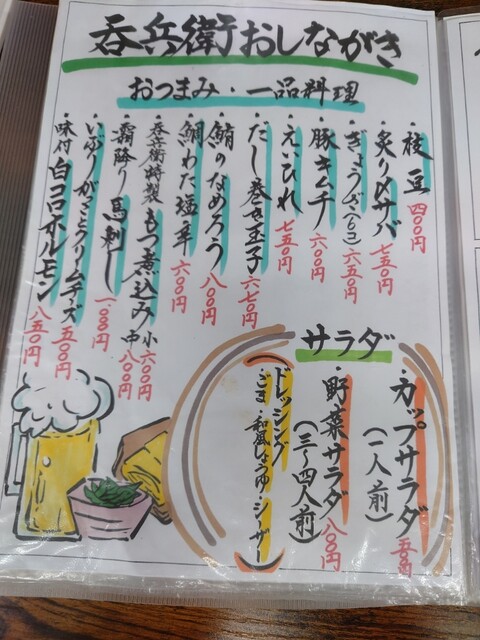 呑兵衛おしながき
おつまみ・一品料理
・枝豆 四〇〇円
・炙り〆サバ 七五〇円
・ぎょうざ(6コ) 六五〇円
・豚キムチ 六〇〇円
・えいひれ 七五〇円
・だし巻き玉子 六七〇円
・鮪のなめろう 八〇〇円
・鯛わた塩辛 六〇〇円
・呑兵衛特製 もつ煮込み 小 六〇〇円 中 八〇〇円
・霜降り馬刺し 一、〇〇〇円
・いぶりがっことクリームチーズ 五〇〇円
・味付 白コロホルモン 八五〇円
サラダ
・カップサラダ
(一人前)
・野菜サラダ 八〇〇円
(三〜四人前)
ドレッシング
ごま・和風しょうゆ・シーザー